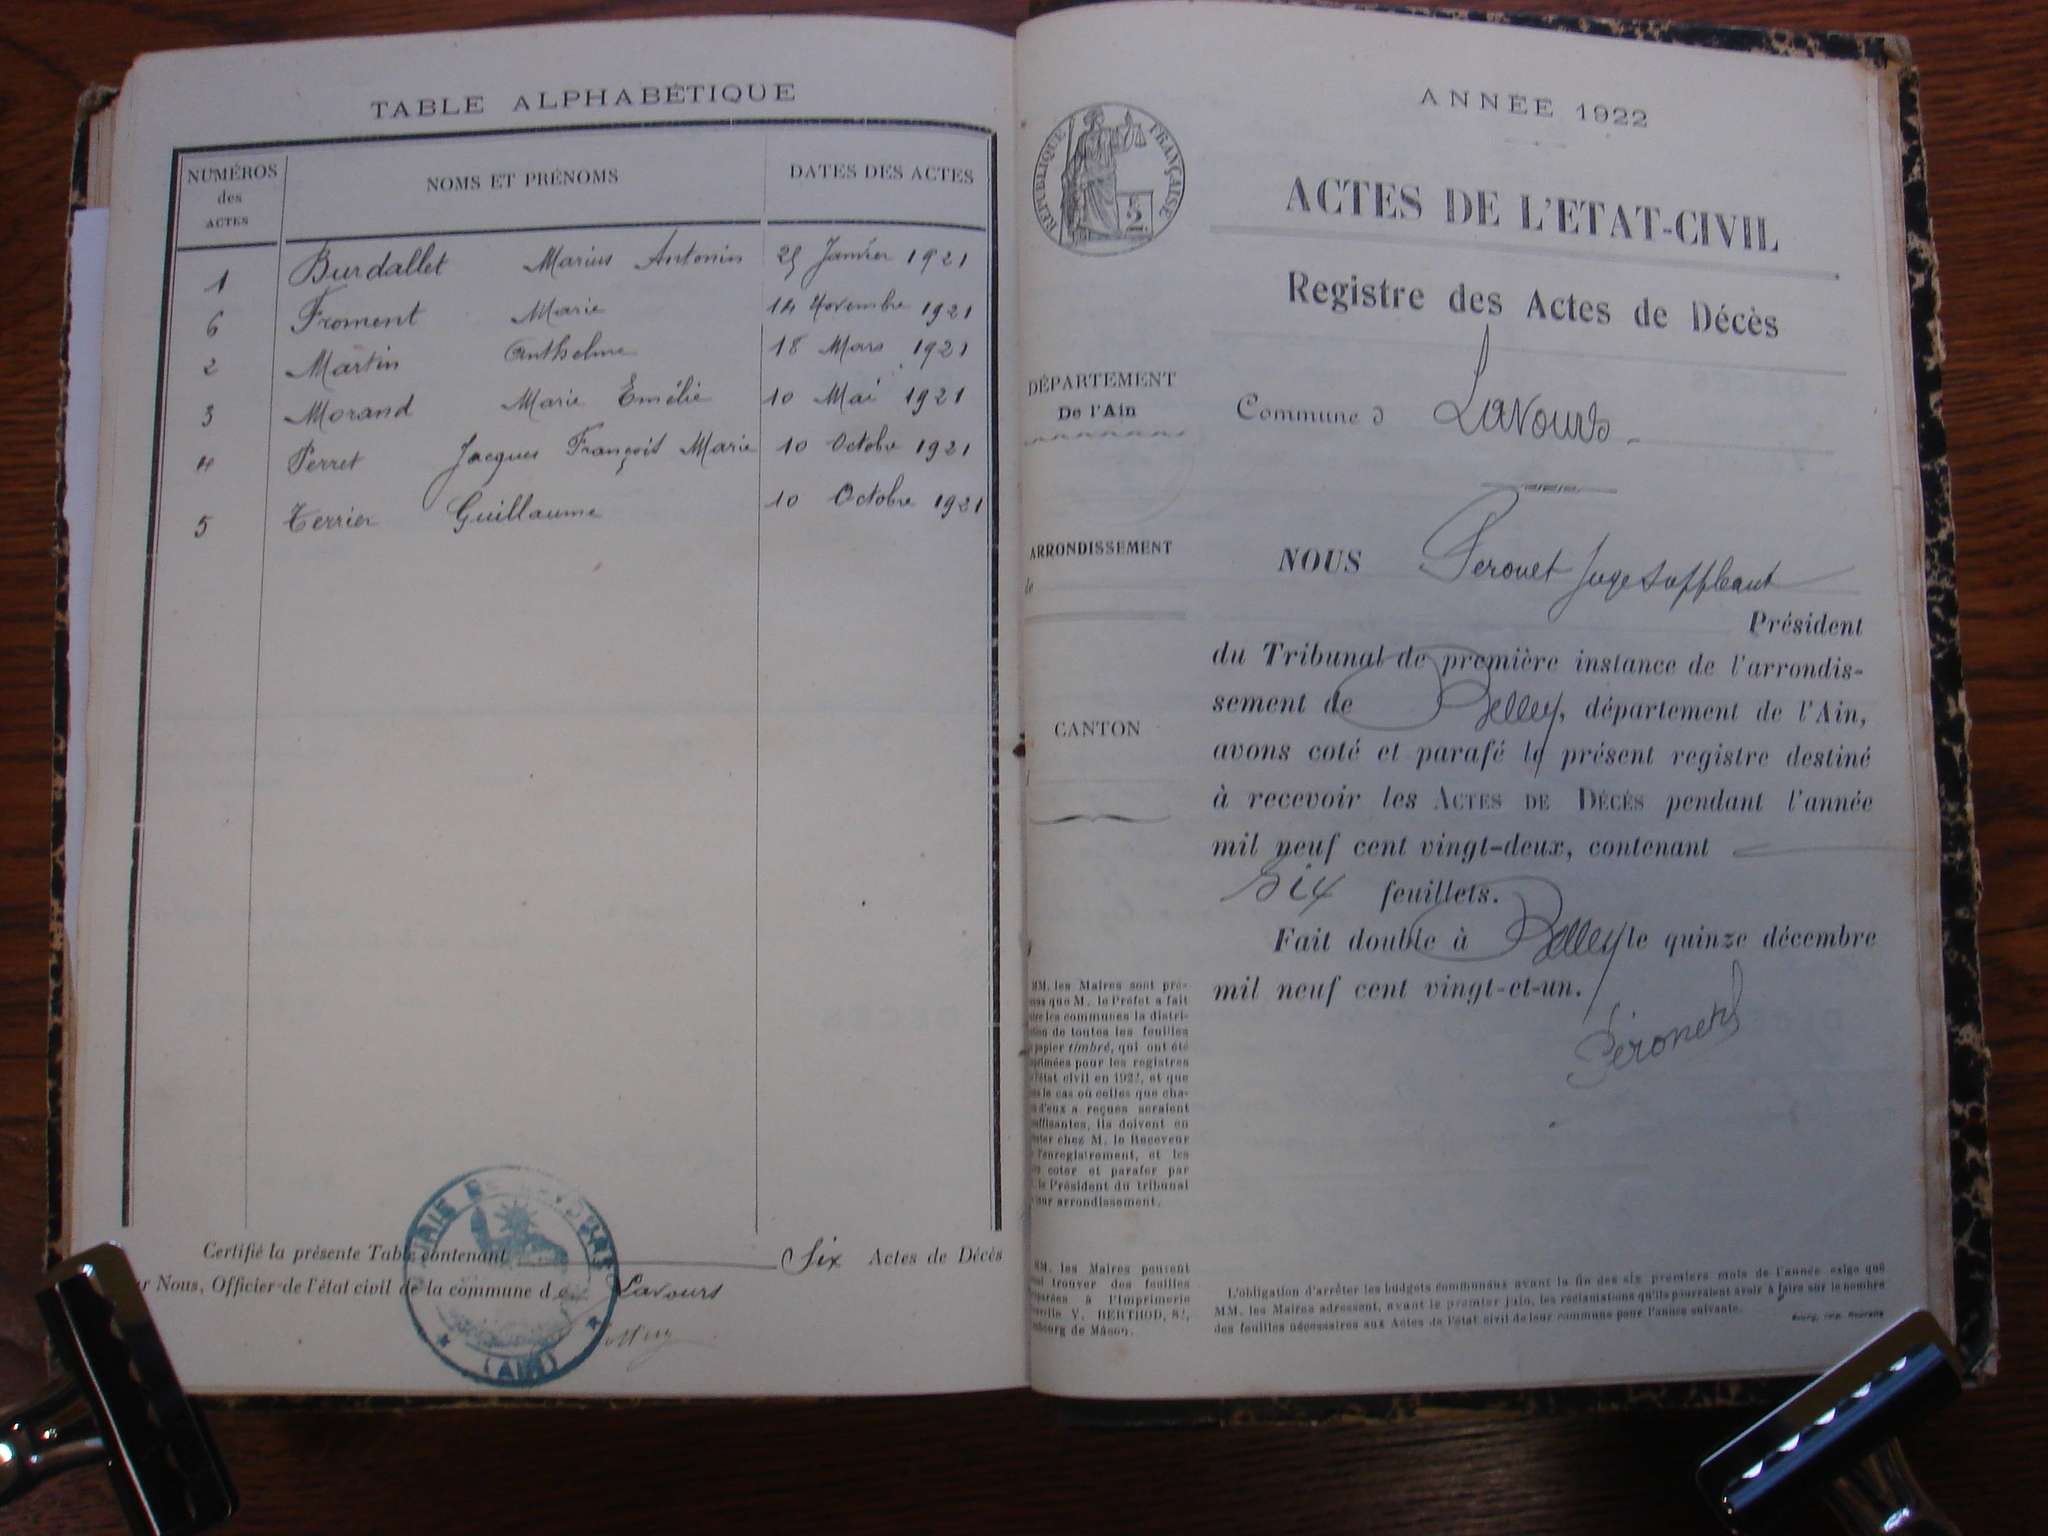 TABLE ALPHABÉTIQUE
NUMÉROS des ACTES NOMS ET PRÉNOMS DATES DES ACTES
1 Burdallet Marius Antonin 25 Janvier 1921
6 Froment Marie 14 Novembre 1921
2 Martin Anthelme 18 Mars 1921
3 Morand Marie Emélie 10 Mai 1921
4 Perret Jacques François Marie 10 Octobre 1921
5 Terrier Guillaume 10 Octobre 1921
Certifié la présente Table contenant Six Actes de Décès
Nous, Officier de l'état civil de la commune de Lavours
(AIN)
ANNÉE 1922
RÉPUBLIQUE FRANÇAISE
2
ACTES DE L'ETAT-CIVIL
Registre des Actes de Décès
DÉPARTEMENT
De l'Ain
Commune d Lavours
ARRONDISSEMENT
de
CANTON
NOUS Perouet Juge Suppleant
Président
du Tribunal de première instance de l'arrondis-
sement de Belley, département de l'Ain,
avons coté et parafé le présent registre destiné
à recevoir les ACTES DE DÉCÈS pendant l'année
mil neuf cent vingt-deux, contenant
Six feuillets.
Fait double à Belley le quinze décembre
mil neuf cent vingt-et-un.
MM. les Maires sont pré-
que M. le Préfet a fait
les communes la distri-
de toutes les feuilles
papier timbré, qui ont été
pour les registres
l'état civil en 1922, et que
le cas où celles que cha-
d'eux a reçues seraient
ils doivent en
chez M. le Receveur
l'enregistrement, et les
coter et parafer par
le Président du tribunal
leur arrondissement.
MM. les Maires peuvent
trouver des feuilles
à l'Imprimerie
V. BERTHOD, 82,
de Mâcon.
L'obligation d'arrêter les budgets communaux avant la fin des six premiers mois de l'année exige que
MM. les Maires adressent, avant le premier juin, les réclamations qu'ils pourraient avoir à faire sur le nombre
des feuilles nécessaires aux Actes de l'état civil de leur commune pour l'année suivante.